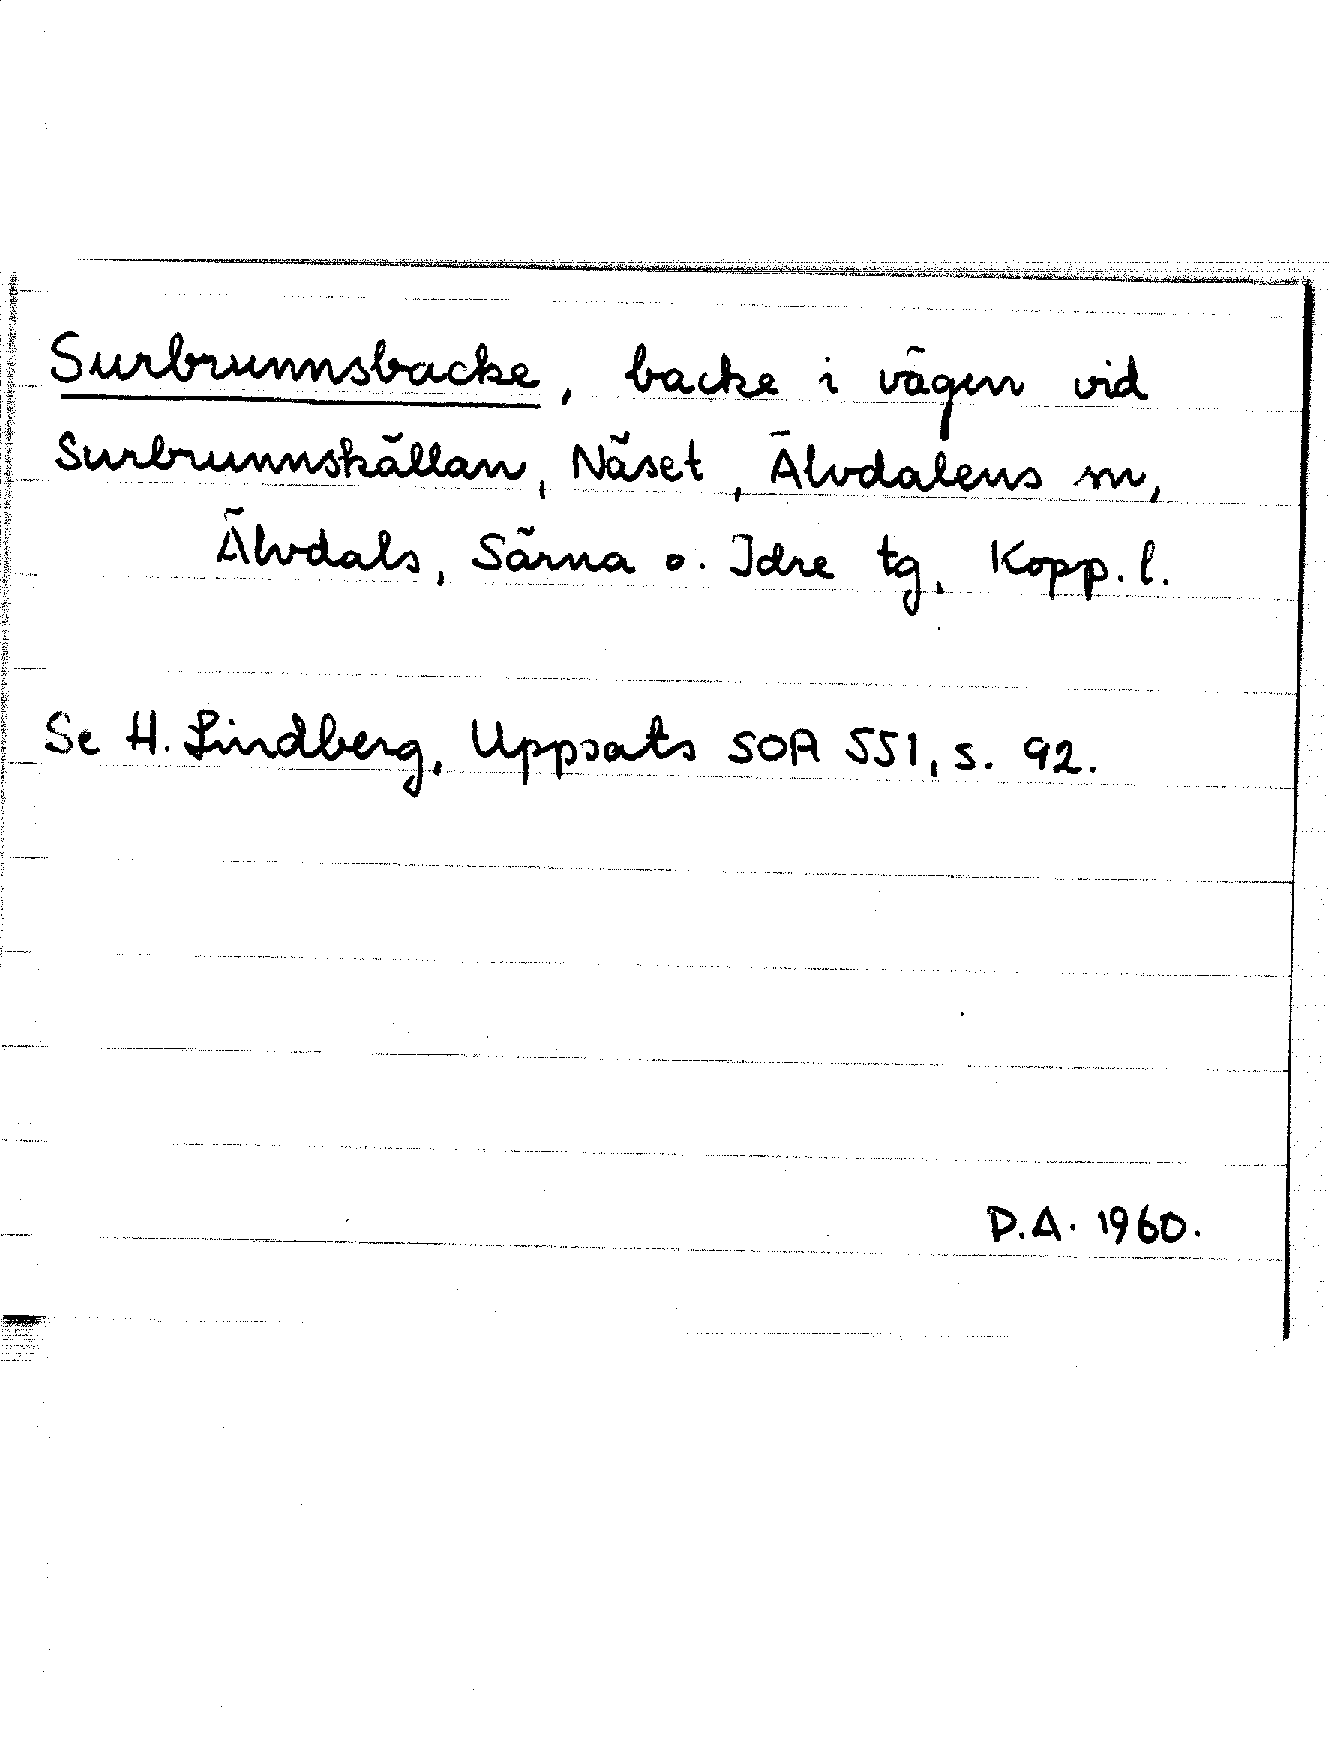 Surbrunnsbacke, backe i vägen vid
Surbrunnskällan, Näset, Älvdalens sn,
Älvdals, Särna o. Idre tg, Kopp. l.
Se H. Lindberg, Uppsats SOA 551, s. 92.
D.A. 1960.